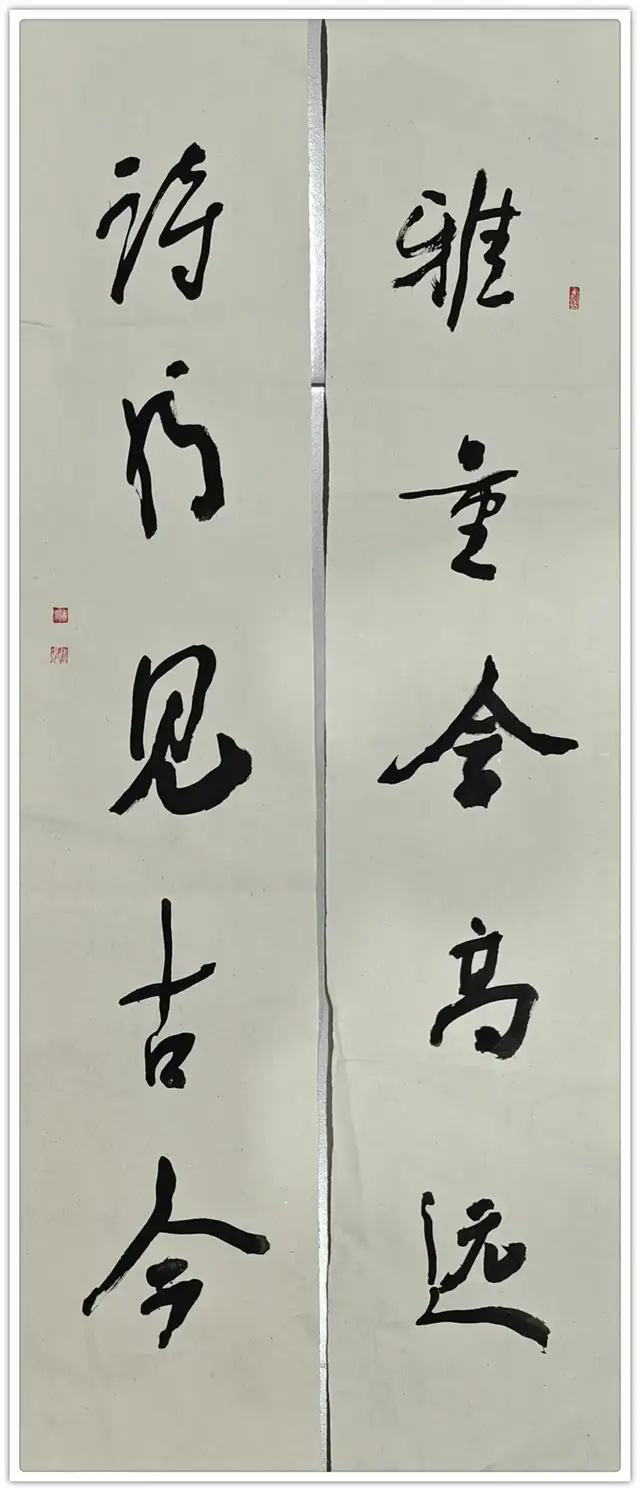 雅量含高远
诗见古今